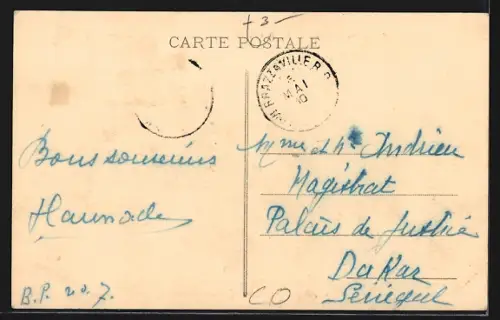 +3-
CARTE POSTALE
BRAZZAVILLE R.P.
MAI
Bons souvenirs
B.P. no 7.
Mme et Mr Andrieu
Magistrat
Palais de Justice
Dakar
Sénégal
CO